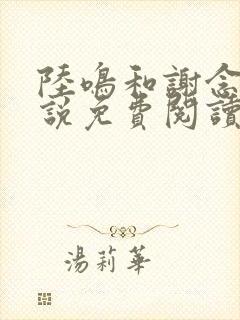 陸鳴和謝念
說免費閱讀
湯莉華